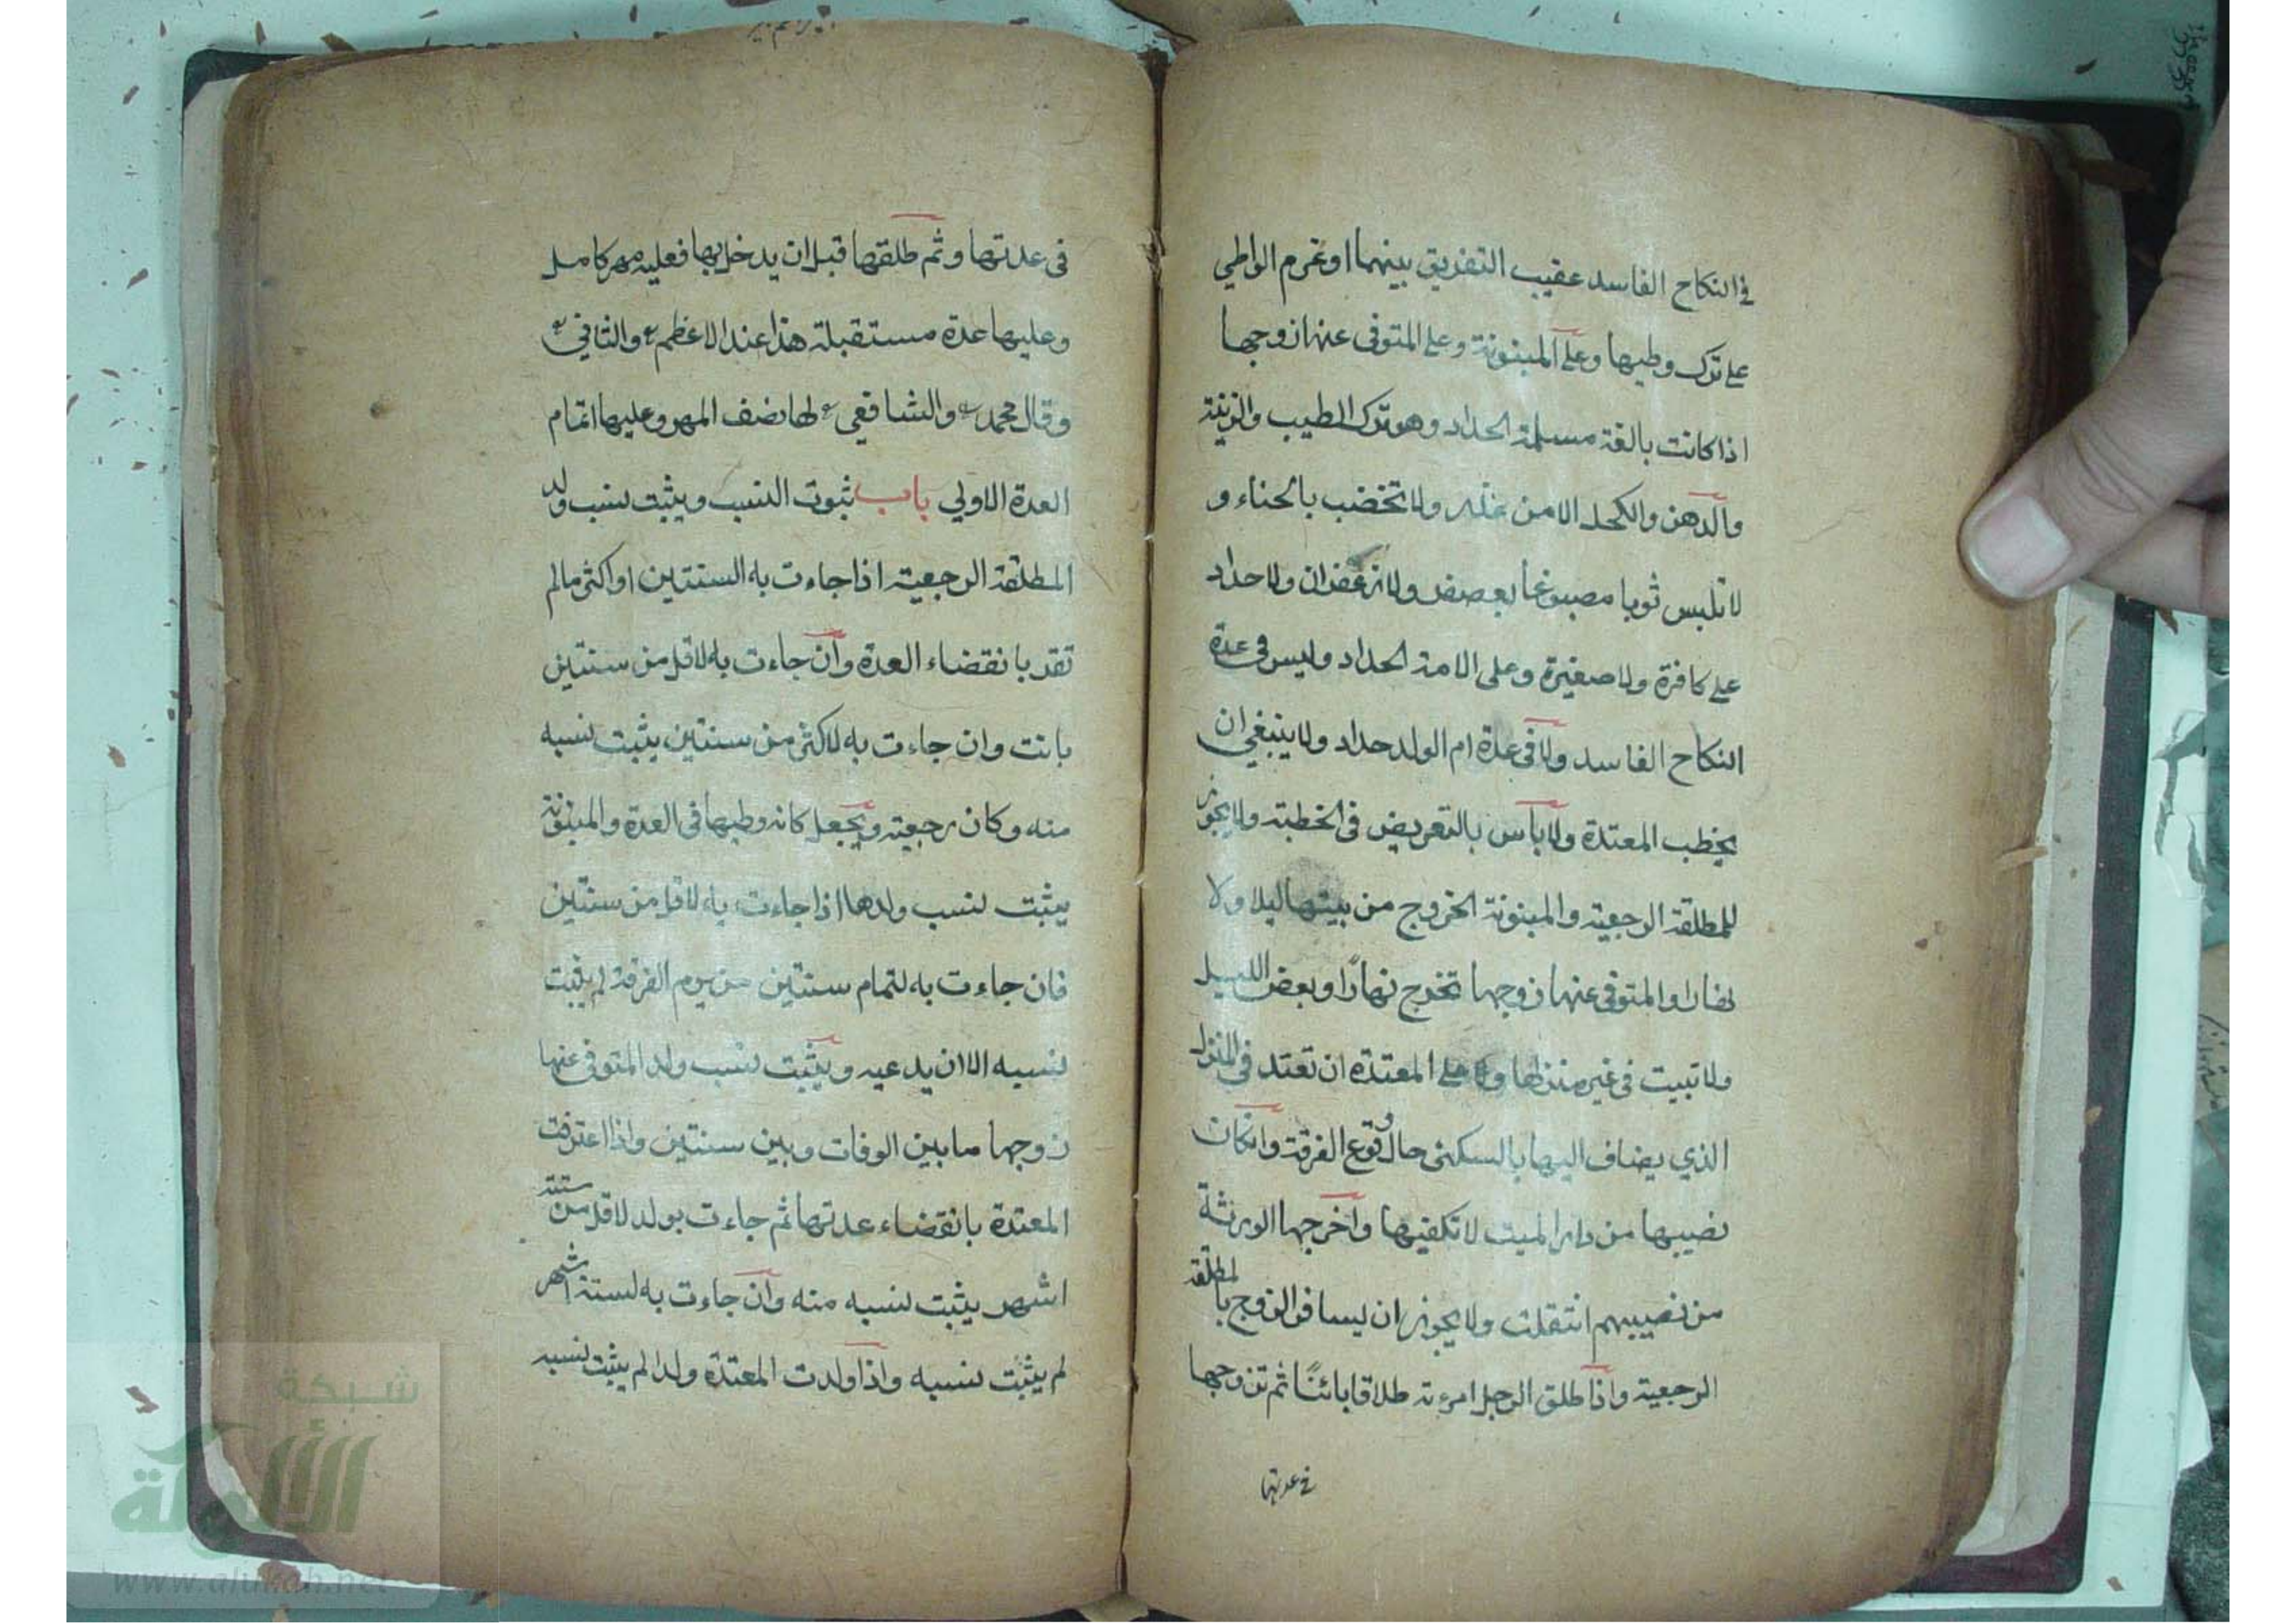 في النكاح الفاسد عقيب التفريق بينهما او عزم الواطي
على ترك وطيها وعلى المبنونة وعلى المتوفى عنها زوجها
اذا كانت بالغة مسلمة الحداد وهو ترك الطيب والزينة
والدهن والكحل الا من عذر ولا تختضب بالحناء و
لا تلبس ثوبا مصبوغا بعصفر ولا زعفران ولا حداد
على كافرة ولا صغيرة وعلى الامة الحداد وليس في عدة
النكاح الفاسد ولا في عدة ام الولد حداد ولا ينبغي ان
يخطب المعتدة ولا بأس بالتعريض في الخطبة ولا يجوز
للمطلقة الرجعية والمبنونة الخروج من بيتها ليلا ولا
نهارا والمتوفى عنها زوجها تخرج نهارًا وبعض الليل
ولا تبيت في غير منزلها وعلى المعتدة ان تعتد في المنزل
الذي يضاف اليها بالسكنى حال وقوع الفرقة وان كان
نصيبها من دار الميت لا تكفيها واخرجها الورثة
من نصيبهم انتقلت ولا يجوز ان يسافر الزوج بالمطلقة
الرجعية واذا طلق الرجل امرءته طلاقا بائنًا ثم تزوجها
في عدتها
في عدتها وثم طلقها قبل ان يدخل بها فعليه مهر كامل
وعليها عدة مستقبلة هذا عند الاعظم والثاني
وقال محمد والشافعي لها نصف المهر وعليها اتمام
العدة الاولي باب ثبوت النسب ويثبت نسب ولد
المطلقة الرجعية اذا جاءت به السنتين او اكثر مالم
تقر بانقضاء العدة وان جاءت به لاقل من سنتين
بانت وان جاءت به لاكثر من سنتين يثبت نسبه
منه وكان رجعية ويجعل كانه وطيها في العدة والمبنونة
يثبت نسب ولدها اذا جاءت به لاقل من سنتين
فان جاءت به لتمام سنتين من يوم الفرقة لم يثبت
نسبه الا ان يدعيه ويثبت نسب ولد المتوفى عنها
زوجها ما بين الوفات وبين سنتين واذا اعترفت
المعتدة بانقضاء عدتها ثم جاءت بولد لاقل من ستة
اشهر يثبت نسبه منه وان جاءت به لستة اشهر
لم يثبت نسبه واذا ولدت المعتدة ولدا لم يثبت نسبه
شبكة
الألوكة
www.alukah.net